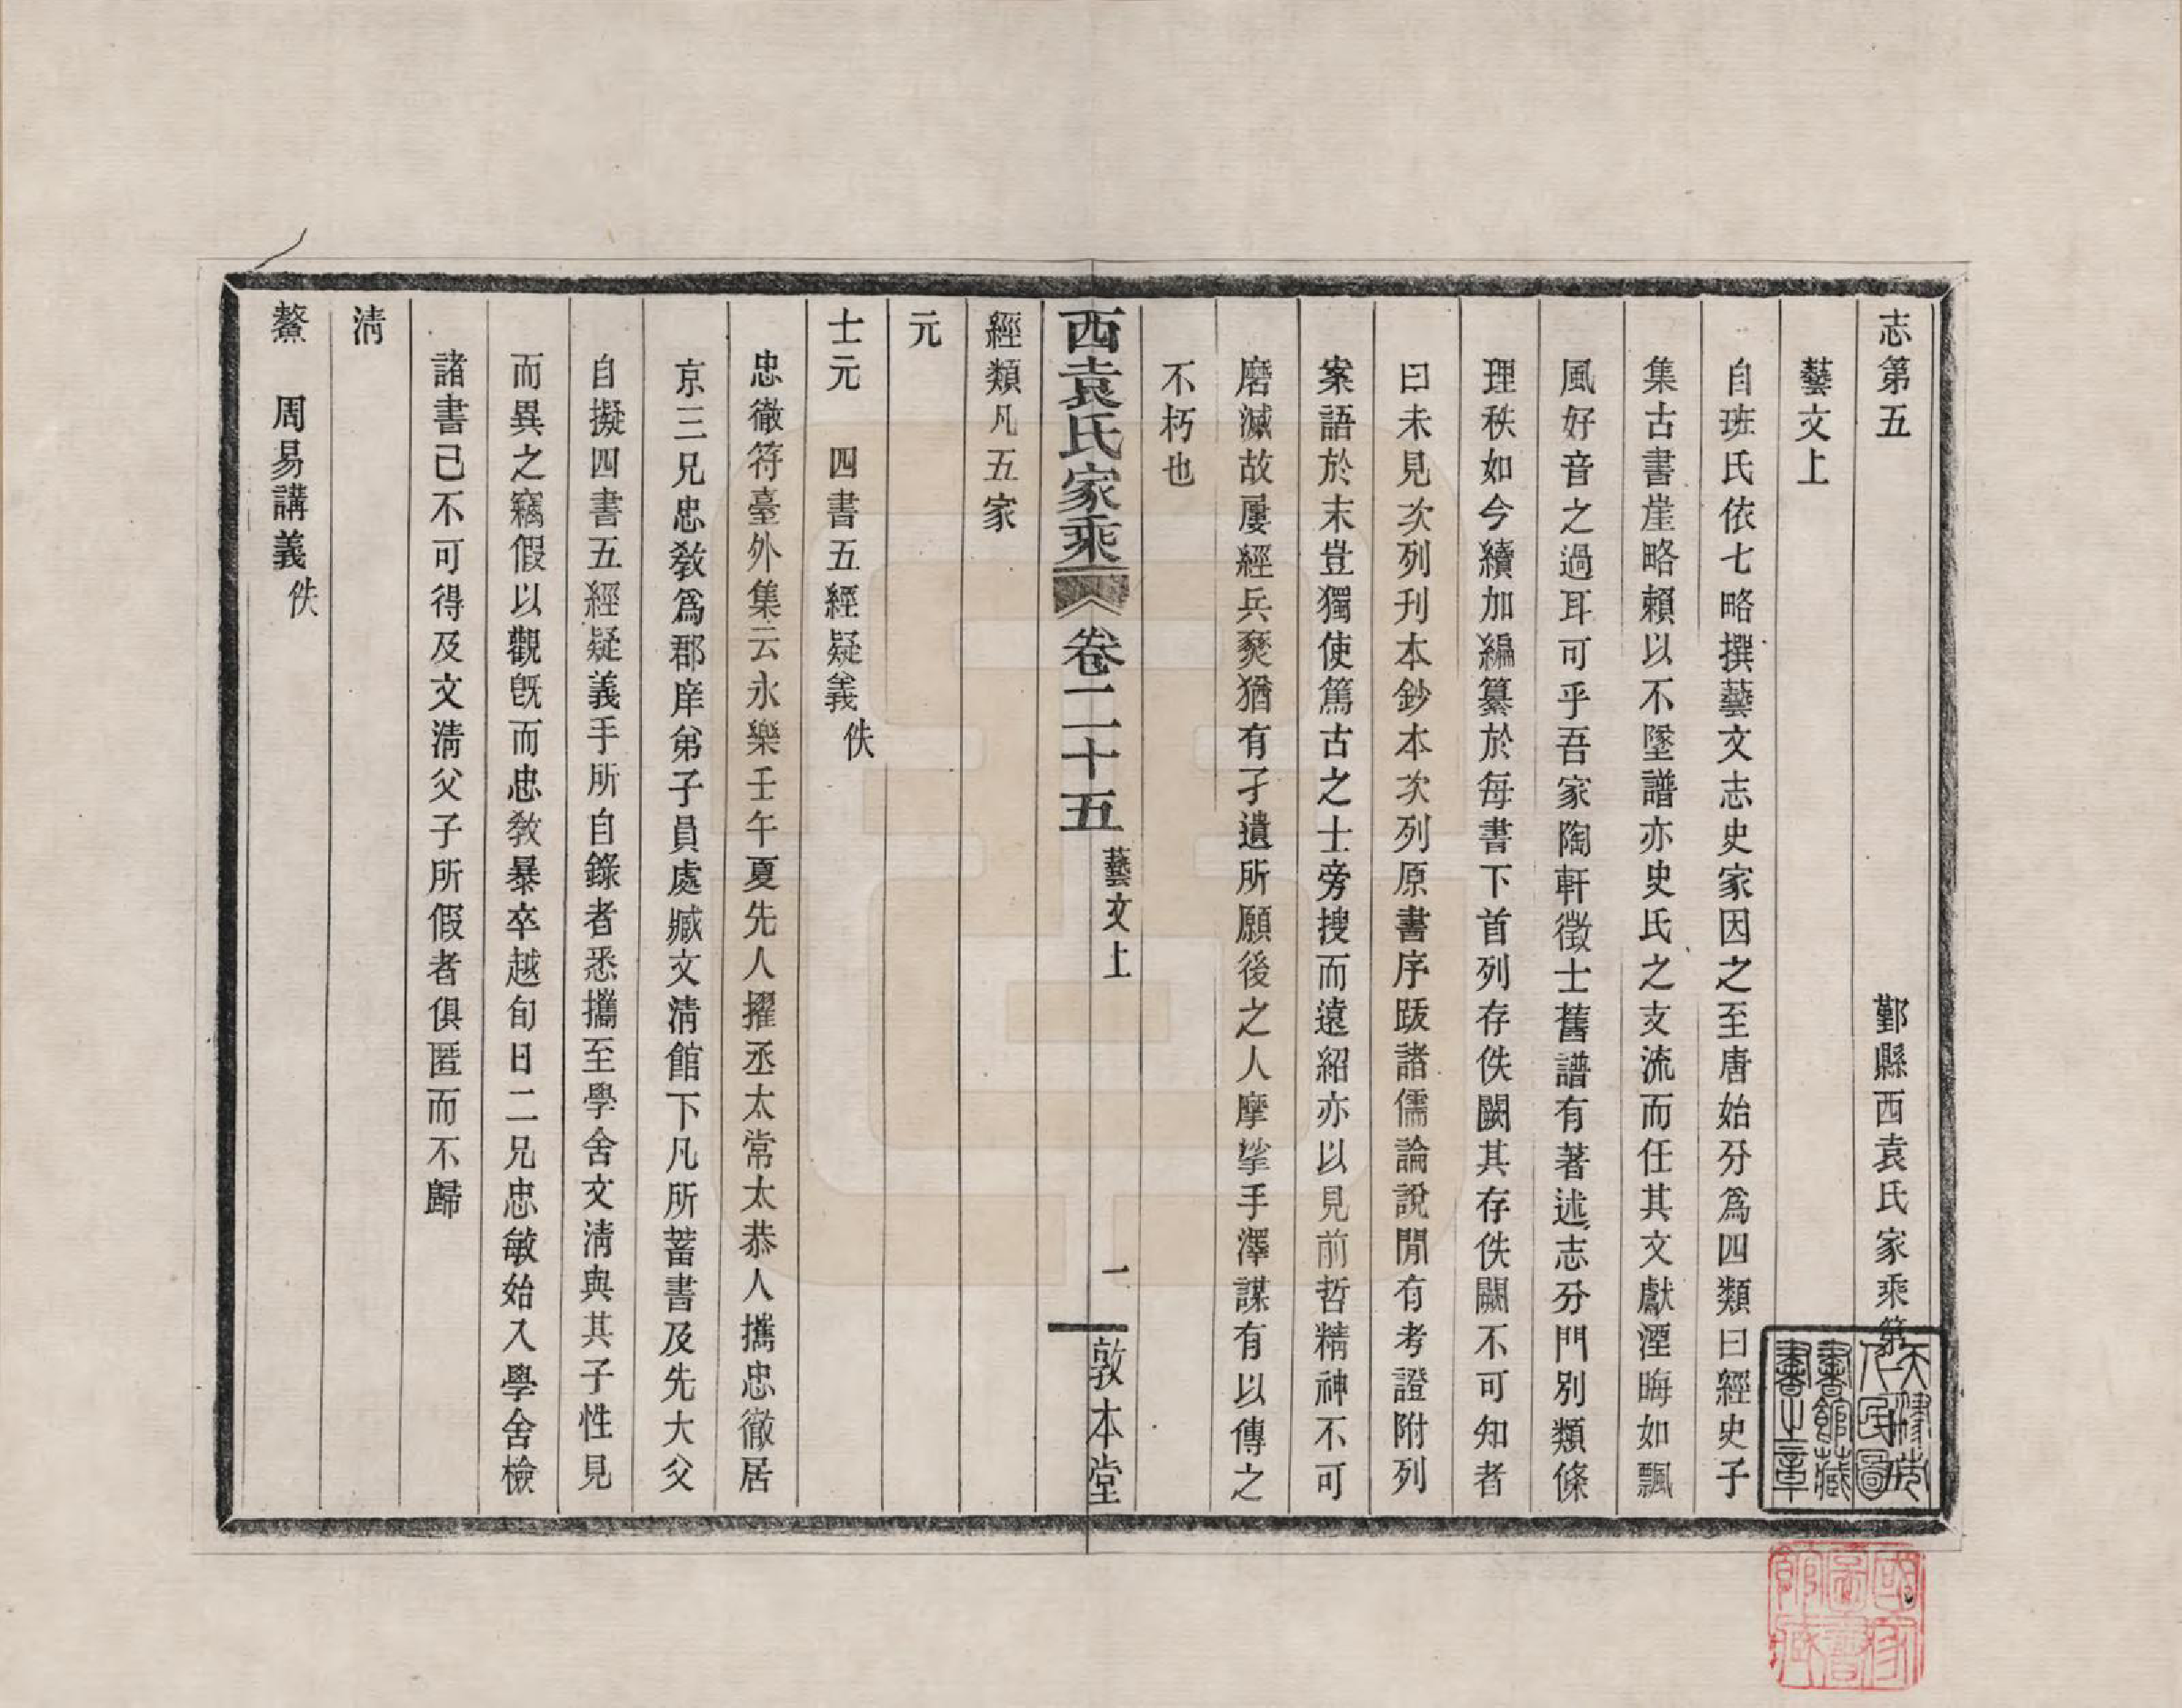 志第五　鄞縣西袁氏家乘第
藝文上
自班氏依七略撰藝文志史家因之至唐始分爲四類曰經史子
集古書崖略賴以不墜譜亦史氏之支流而任其文獻湮晦如飄
風好音之過耳可乎吾家陶軒徵士舊譜有著述志分門別類條
理秩如今續加編纂於每書下首列存佚闕其存佚闕不可知者
曰未見次列刊本鈔本次列原書序跋諸儒論說閒有考證附列
案語於末豈獨使篤古之士旁搜而遠紹亦以見前哲精神不可
磨滅故屢經兵燹猶有孑遺所願後之人摩挲手澤謀有以傳之
不朽也
西袁氏家乘　卷二十五　藝文上　一　敦本堂
經類凡五家
元
士元　四書五經疑義佚
忠徹符臺外集云永樂壬午夏先人擢丞太常太恭人攜忠徹居
京三兄忠敎爲郡庠弟子員處臧文淸館下凡所蓄書及先大父
自擬四書五經疑義手所自錄者悉攜至學舍文淸與其子性見
而異之竊假以觀旣而忠敎暴卒越旬日二兄忠敏始入學舍檢
諸書已不可得及文淸父子所假者俱匿而不歸
淸
鰲　周易講義佚
天津市人民圖書館藏書之章
國家圖書館藏